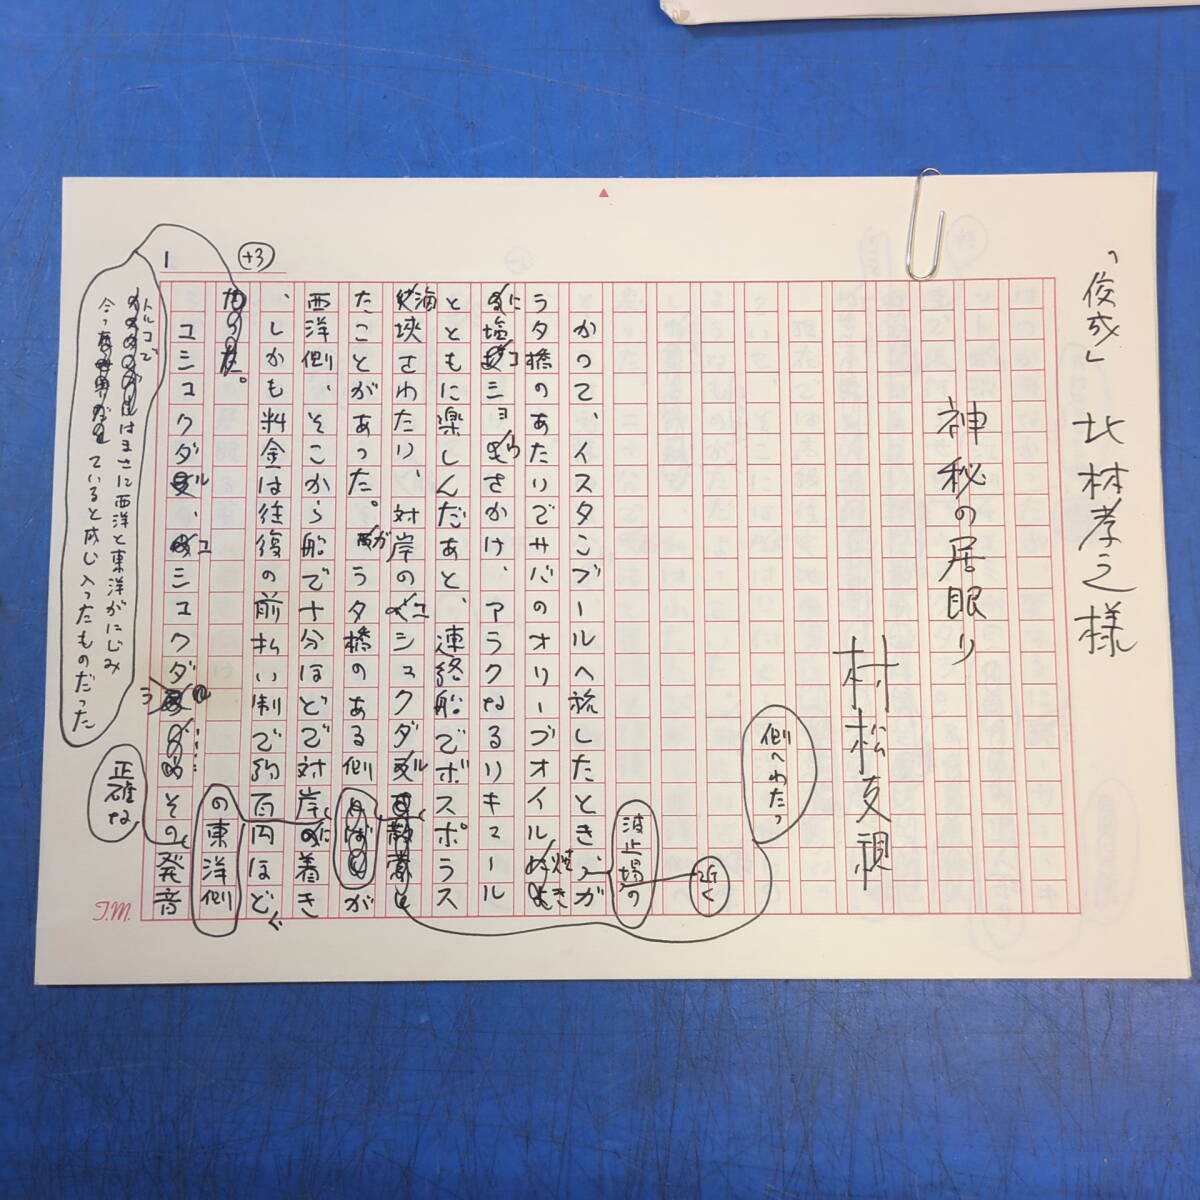 「俊成」 北林孝之様
神秘の居眠り
村松友視
側へわたっ
近く
波止場の
かつて、イスタンブールへ旅したとき、ガ
ラタ橋のあたりでサバのオリーブオイル焼き
に塩コショウをかけ、アラクなるリキュール
とともに楽しんだあと、連絡船でボスポラス
海峡をわたり、対岸のユシュクダル
たことがあった。ガラタ橋のある側が
西洋側、そこから船で十分ほどで対岸に着き
、しかも料金は往復の前払い制で約百円ほど
の東洋側
ユシコクダル、ユシコクダラ……その発音
正確な
トルコではまさに西洋と東洋がにじみ
合っていると感じ入ったものだった
1
+3
T.M.